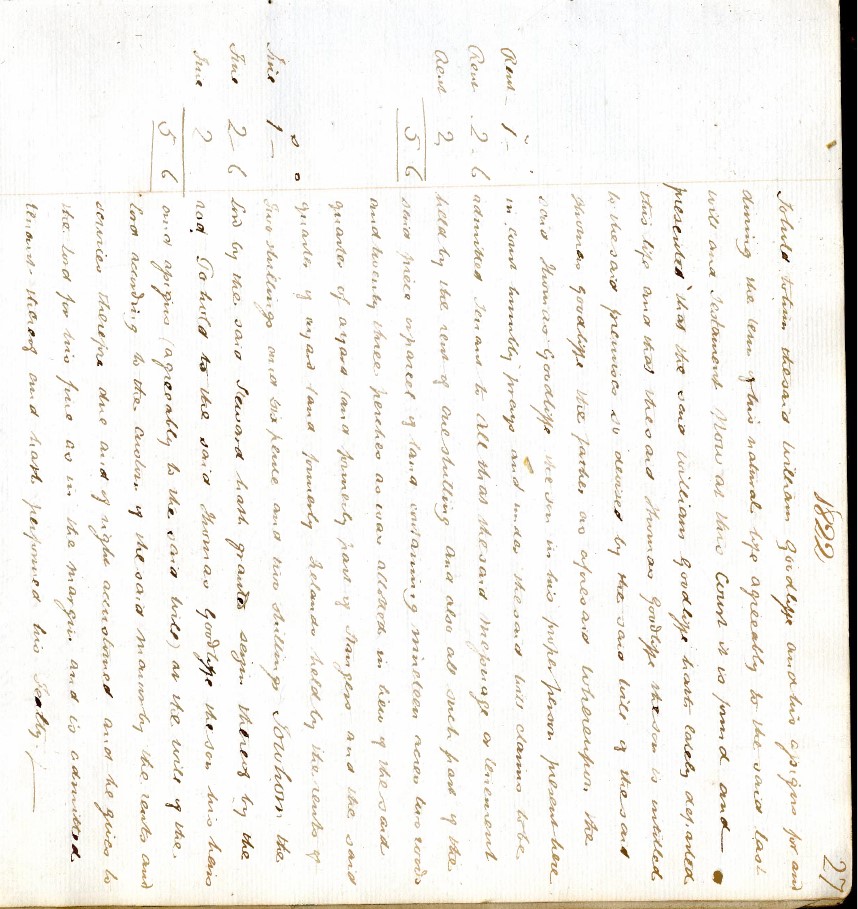 27
1822
To hold to him the said William Goodliffe and his assigns for and
during the term of his natural life agreeably to the said last
will and Testament Now at this Court it is found and
presented that the said William Goodliffe hath lately departed
this life and that the said Thomas Goodliffe the son is intitled
to the said premises so devised by the said will of the said
Thomas Goodliffe the father as aforesaid Whereupon the
said Thomas Goodliffe the son in his proper person present here
Rent 1 -
in Court humbly prays and under the said will claims to be
Rent 2 - 6
admitted Tenant to All that the said Messuage or tenement
Rent 2
held by the rent of one shilling and also all such part of the
5 6
said piece or parcel of land containing nineteen acres two roods
and twenty three perches as was allotted in lieu of the said
quarter of a yard land formerly part of Strangers and the said
s o
quarter of a yard land formerly Irelands held by the rents of
Fine 1 -
two shillings and six pence and two shillings To whom the
Fine 2 - 6
Lord by the said Steward hath granted seizin thereof by the
Fine 2
rod To hold to the said Thomas Goodliffe the son his heirs
5 6
and assigns (agreeably to the said will) at the will of the
Lord according to the custom of the said manor by the rents and
services therefore due and of right accustomed and he gives to
the Lord for his fine as in the margin and is admitted
tenant thereof and hath performed his Fealty.